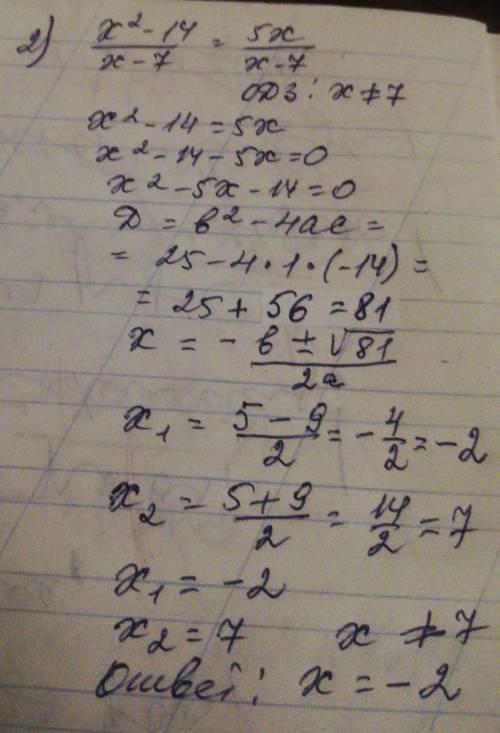 2) x² - 14 / x - 7 = 5x / x - 7
ОДЗ: x ≠ 7
x² - 14 = 5x
x² - 14 - 5x = 0
x² - 5x - 14 = 0
D = b² - 4ac =
= 25 - 4 · 1 · (-14) =
= 25 + 56 = 81
x = - b ± √81 / 2a
x₁ = 5 - 9 / 2 = - 4/2 = -2
x₂ = 5 + 9 / 2 = 14/2 = 7
x₁ = -2
x₂ = 7 x ≠ 7
Ответ: x = -2